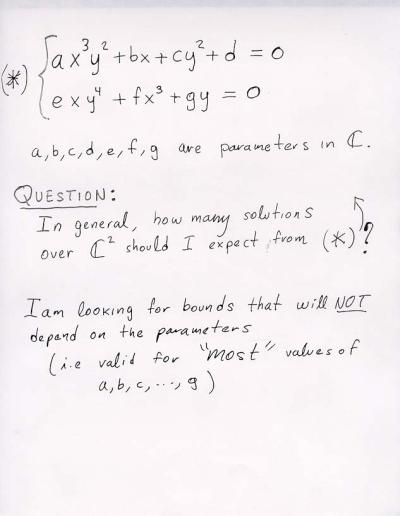 (*) { ax³y² + bx + cy² + d = 0
exy⁴ + fx³ + gy = 0
a,b,c,d,e,f,g are parameters in ℂ.
QUESTION:
In general, how many solutions
over ℂ² should I expect from (*)?
I am looking for bounds that will NOT
depend on the parameters
(i.e valid for "most" values of
a,b,c,...,g)